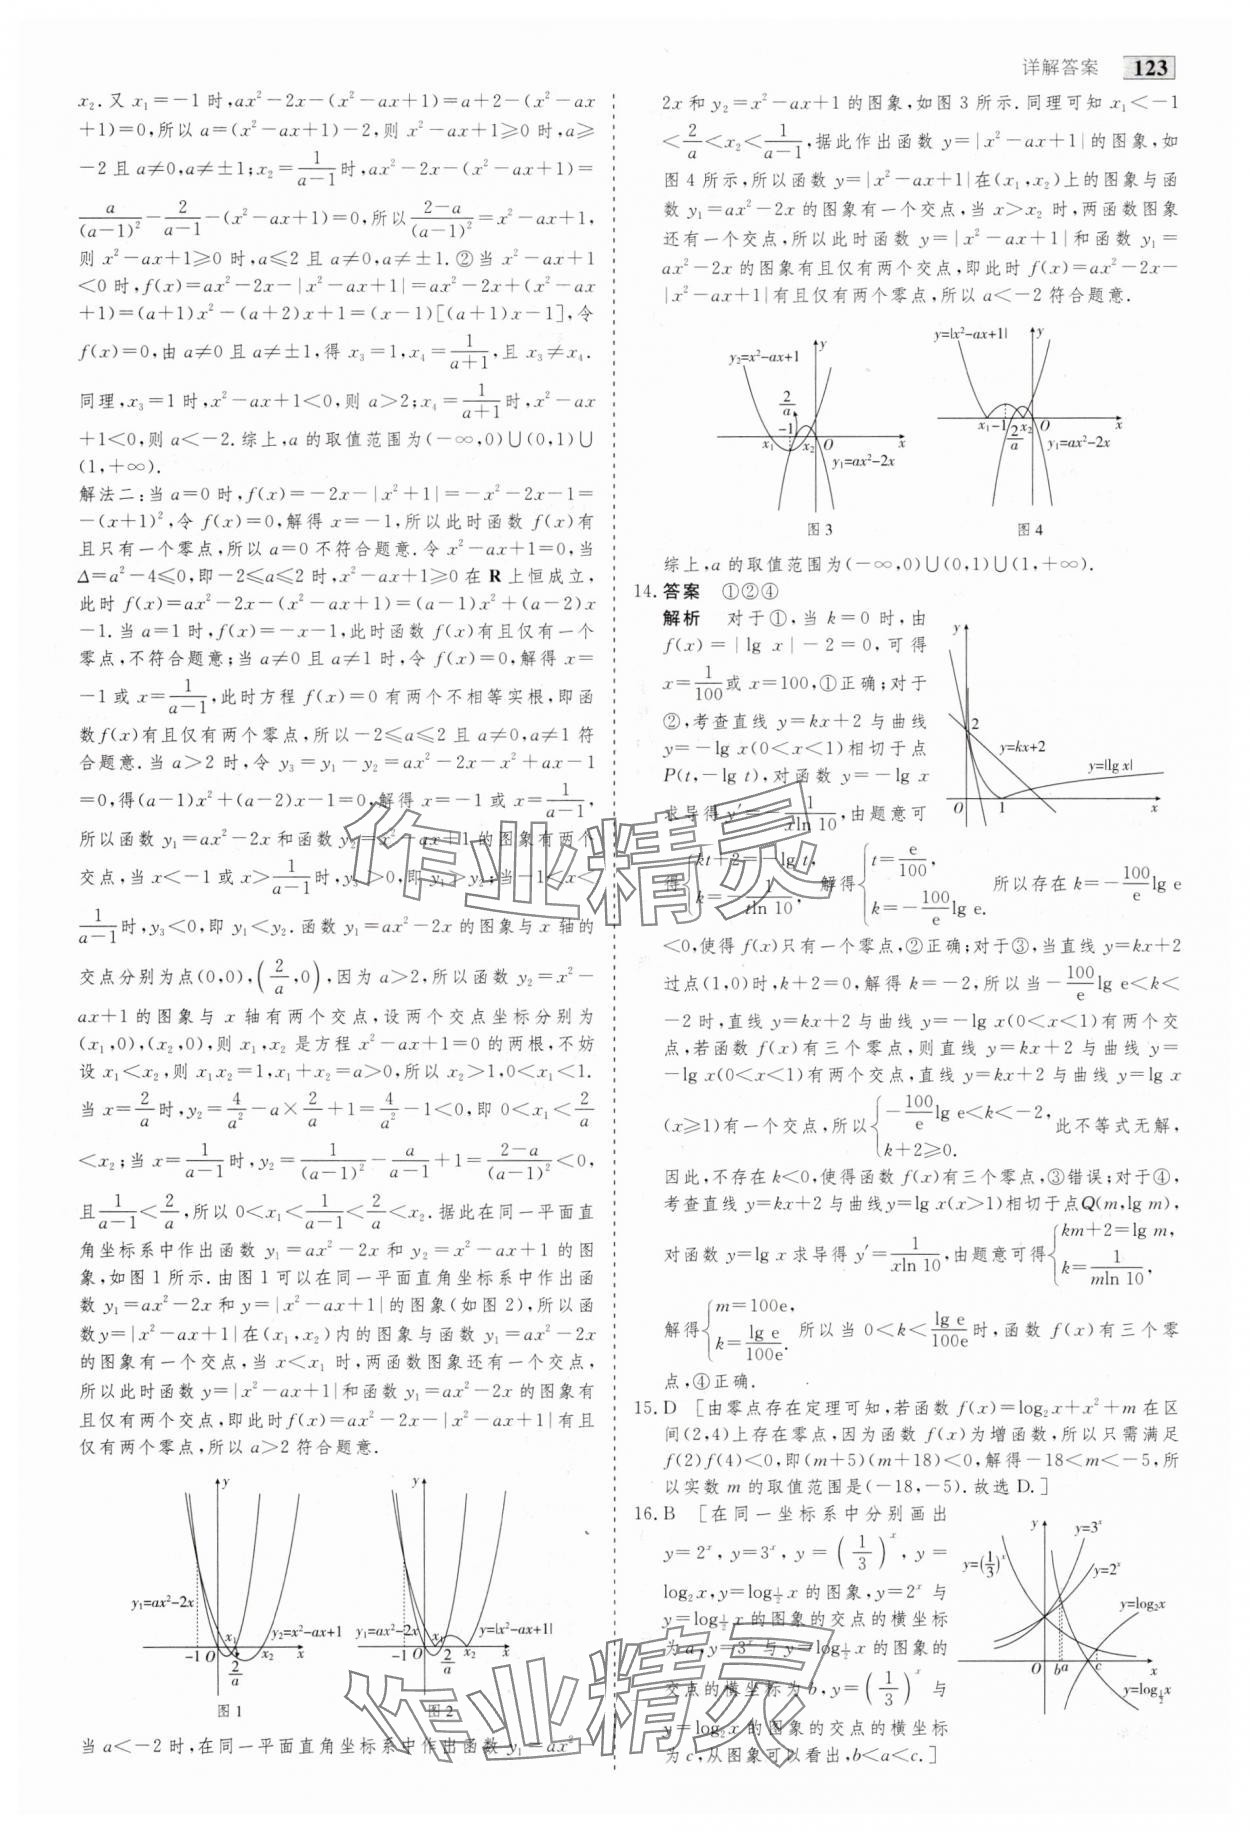 详解答案 123
x₂.又 x₁=-1 时,ax²-2x-(x²-ax+1)=a+2-(x²-ax
+1)=0,所以 a=(x²-ax+1)-2,则 x²-ax+1≥0 时,a≥
-2 且 a≠0,a≠±1;x₂=1/(a-1)时,ax²-2x-(x²-ax+1)=
a/(a-1)²-2/(a-1)-(x²-ax+1)=0,所以(2-a)/(a-1)²=x²-ax+1,
则 x²-ax+1≥0 时,a≤2 且 a≠0,a≠±1.②当 x²-ax+1
<0 时,f(x)=ax²-2x-|x²-ax+1|=ax²-2x+(x²-ax
+1)=(a+1)x²-(a+2)x+1=(x-1)[(a+1)x-1],令
f(x)=0,由 a≠0 且 a≠±1,得 x₃=1,x₄=1/(a+1),且 x₃≠x₄.
同理,x₃=1 时,x²-ax+1<0,则 a>2;x₄=1/(a+1)时,x²-ax
+1<0,则 a<-2.综上,a 的取值范围为(-∞,0)∪(0,1)∪
(1,+∞).
解法二:当 a=0 时,f(x)=-2x-|x²+1|=-x²-2x-1=
-(x+1)²,令 f(x)=0,解得 x=-1,所以此时函数 f(x)有
且只有一个零点,所以 a=0 不符合题意.令 x²-ax+1=0,当
Δ=a²-4≤0,即-2≤a≤2 时,x²-ax+1≥0 在 R 上恒成立,
此时 f(x)=ax²-2x-(x²-ax+1)=(a-1)x²+(a-2)x
-1.当 a=1 时,f(x)=-x-1,此时函数 f(x)有且仅有一个
零点,不符合题意;当 a≠0 且 a≠1 时,令 f(x)=0,解得 x=
-1 或 x=1/(a-1),此时方程 f(x)=0 有两个不相等实根,即函
数f(x)有且仅有两个零点,所以-2≤a≤2 且 a≠0,a≠1 符
合题意.当 a>2 时,令 y₃=y₁-y₂=ax²-2x-x²+ax-1
=0,得(a-1)x²+(a-2)x-1=0,解得 x=-1 或 x=1/(a-1),
所以函数 y₁=ax²-2x 和函数 y₂=x²-ax+1 的图象有两个
交点,当 x<-1 或 x>1/(a-1)时,y₃>0,即 y₁>y₂;当-1<x<
1/(a-1)时,y₃<0,即 y₁<y₂.函数 y₁=ax²-2x 的图象与 x 轴的
交点分别为点(0,0),(2/a,0),因为 a>2,所以函数 y₂=x²-
ax+1 的图象与 x 轴有两个交点,设两个交点坐标分别为
(x₁,0),(x₂,0),则 x₁,x₂ 是方程 x²-ax+1=0 的两根,不妨
设 x₁<x₂,则 x₁x₂=1,x₁+x₂=a>0,所以 x₂>1,0<x₁<1.
当 x=2/a时,y₂=4/a²-a×2/a+1=4/a²-1<0,即 0<x₁<2/a
<x₂;当 x=1/(a-1)时,y₂=1/(a-1)²-a/(a-1)+1=(2-a)/(a-1)²<0,
且1/(a-1)<2/a,所以 0<x₁<1/(a-1)<2/a<x₂.据此在同一平面直
角坐标系中作出函数 y₁=ax²-2x 和 y₂=x²-ax+1 的图
象,如图 1 所示.由图 1 可以在同一平面直角坐标系中作出函
数 y₁=ax²-2x 和 y=|x²-ax+1|的图象(如图 2),所以函
数y=|x²-ax+1|在(x₁,x₂)内的图象与函数 y₁=ax²-2x
的图象有一个交点,当 x<x₁ 时,两函数图象还有一个交点,
所以此时函数 y=|x²-ax+1|和函数 y₁=ax²-2x 的图象有
且仅有两个交点,即此时f(x)=ax²-2x-|x²-ax+1|有且
仅有两个零点,所以 a>2 符合题意.
y₁=ax²-2x y₂=x²-ax+1 y x₁ -1 O 2/a x₂ x
图 1
y₁=ax²-2x y=|x²-ax+1| y x₁ -1 O 2/a x₂ x
图 2
当 a<-2 时,在同一平面直角坐标系中作出函数 y₁=ax²-
2x 和 y₂=x²-ax+1 的图象,如图 3 所示.同理可知 x₁<-1
<2/a<x₂<1/(a-1),据此作出函数 y=|x²-ax+1|的图象,如
图 4 所示,所以函数 y=|x²-ax+1|在(x₁,x₂)上的图象与函
数 y₁=ax²-2x 的图象有一个交点,当 x>x₂ 时,两函数图象
还有一个交点,所以此时函数 y=|x²-ax+1|和函数 y₁=
ax²-2x 的图象有且仅有两个交点,即此时 f(x)=ax²-2x-
|x²-ax+1|有且仅有两个零点,所以 a<-2 符合题意.
y₂=x²-ax+1 y 2/a -1 x₁ x₂ O x y₁=ax²-2x
图 3
y=|x²-ax+1| y x₁ -1 2/a x₂ O x y₁=ax²-2x
图 4
综上,a 的取值范围为(-∞,0)∪(0,1)∪(1,+∞).
14.答案 ①②④
解析 对于①,当 k=0 时,由
f(x)=|lg x|-2=0,可得
x=1/100或 x=100,①正确;对于
②,考查直线 y=kx+2 与曲线
y=-lg x(0<x<1)相切于点
P(t,-lg t),对函数 y=-lg x
求导得 y′=-1/(xln 10),由题意可
y 2 y=kx+2 y=|lg x| O 1 x
得{kt+2=-lg t, k=-1/(tln 10), 解得{t=e/100, k=-100/e lg e. 所以存在 k=-100/e lg e
<0,使得 f(x)只有一个零点,②正确;对于③,当直线 y=kx+2
过点(1,0)时,k+2=0,解得 k=-2,所以当-100/e lg e<k<
-2 时,直线 y=kx+2 与曲线 y=-lg x(0<x<1)有两个交
点,若函数 f(x)有三个零点,则直线 y=kx+2 与曲线 y=
-lg x(0<x<1)有两个交点,直线 y=kx+2 与曲线 y=lg x
(x≥1)有一个交点,所以{-100/e lg e<k<-2, k+2≥0. 此不等式无解,
因此,不存在 k<0,使得函数 f(x)有三个零点,③错误;对于④,
考查直线 y=kx+2 与曲线y=lg x(x>1)相切于点Q(m,lg m),
对函数 y=lg x 求导得 y′=1/(xln 10),由题意可得{km+2=lg m, k=1/(mln 10),
解得{m=100e, k=lg e/100e. 所以当 0<k<lg e/100e时,函数 f(x)有三个零
点,④正确.
15.D [由零点存在定理可知,若函数 f(x)=log₂x+x²+m 在区
间(2,4)上存在零点,因为函数 f(x)为增函数,所以只需满足
f(2)f(4)<0,即(m+5)(m+18)<0,解得-18<m<-5,所
以实数 m 的取值范围是(-18,-5).故选 D.]
16.B [在同一坐标系中分别画出
y=2ˣ,y=3ˣ,y=(1/3)ˣ,y=
log₂x,y=log_{1/2} x 的图象,y=2ˣ 与
y=log_{1/2} x 的图象的交点的横坐标
为 a,y=3ˣ 与 y=log_{1/2} x 的图象的
交点的横坐标为 b,y=(1/3)ˣ 与
y=log₂x 的图象的交点的横坐标
为 c,从图象可以看出,b<a<c.]
y y=3ˣ y=(1/3)ˣ y=2ˣ y=log₂x O b a c x y=log_{1/2}x
作业精灵
作业精灵